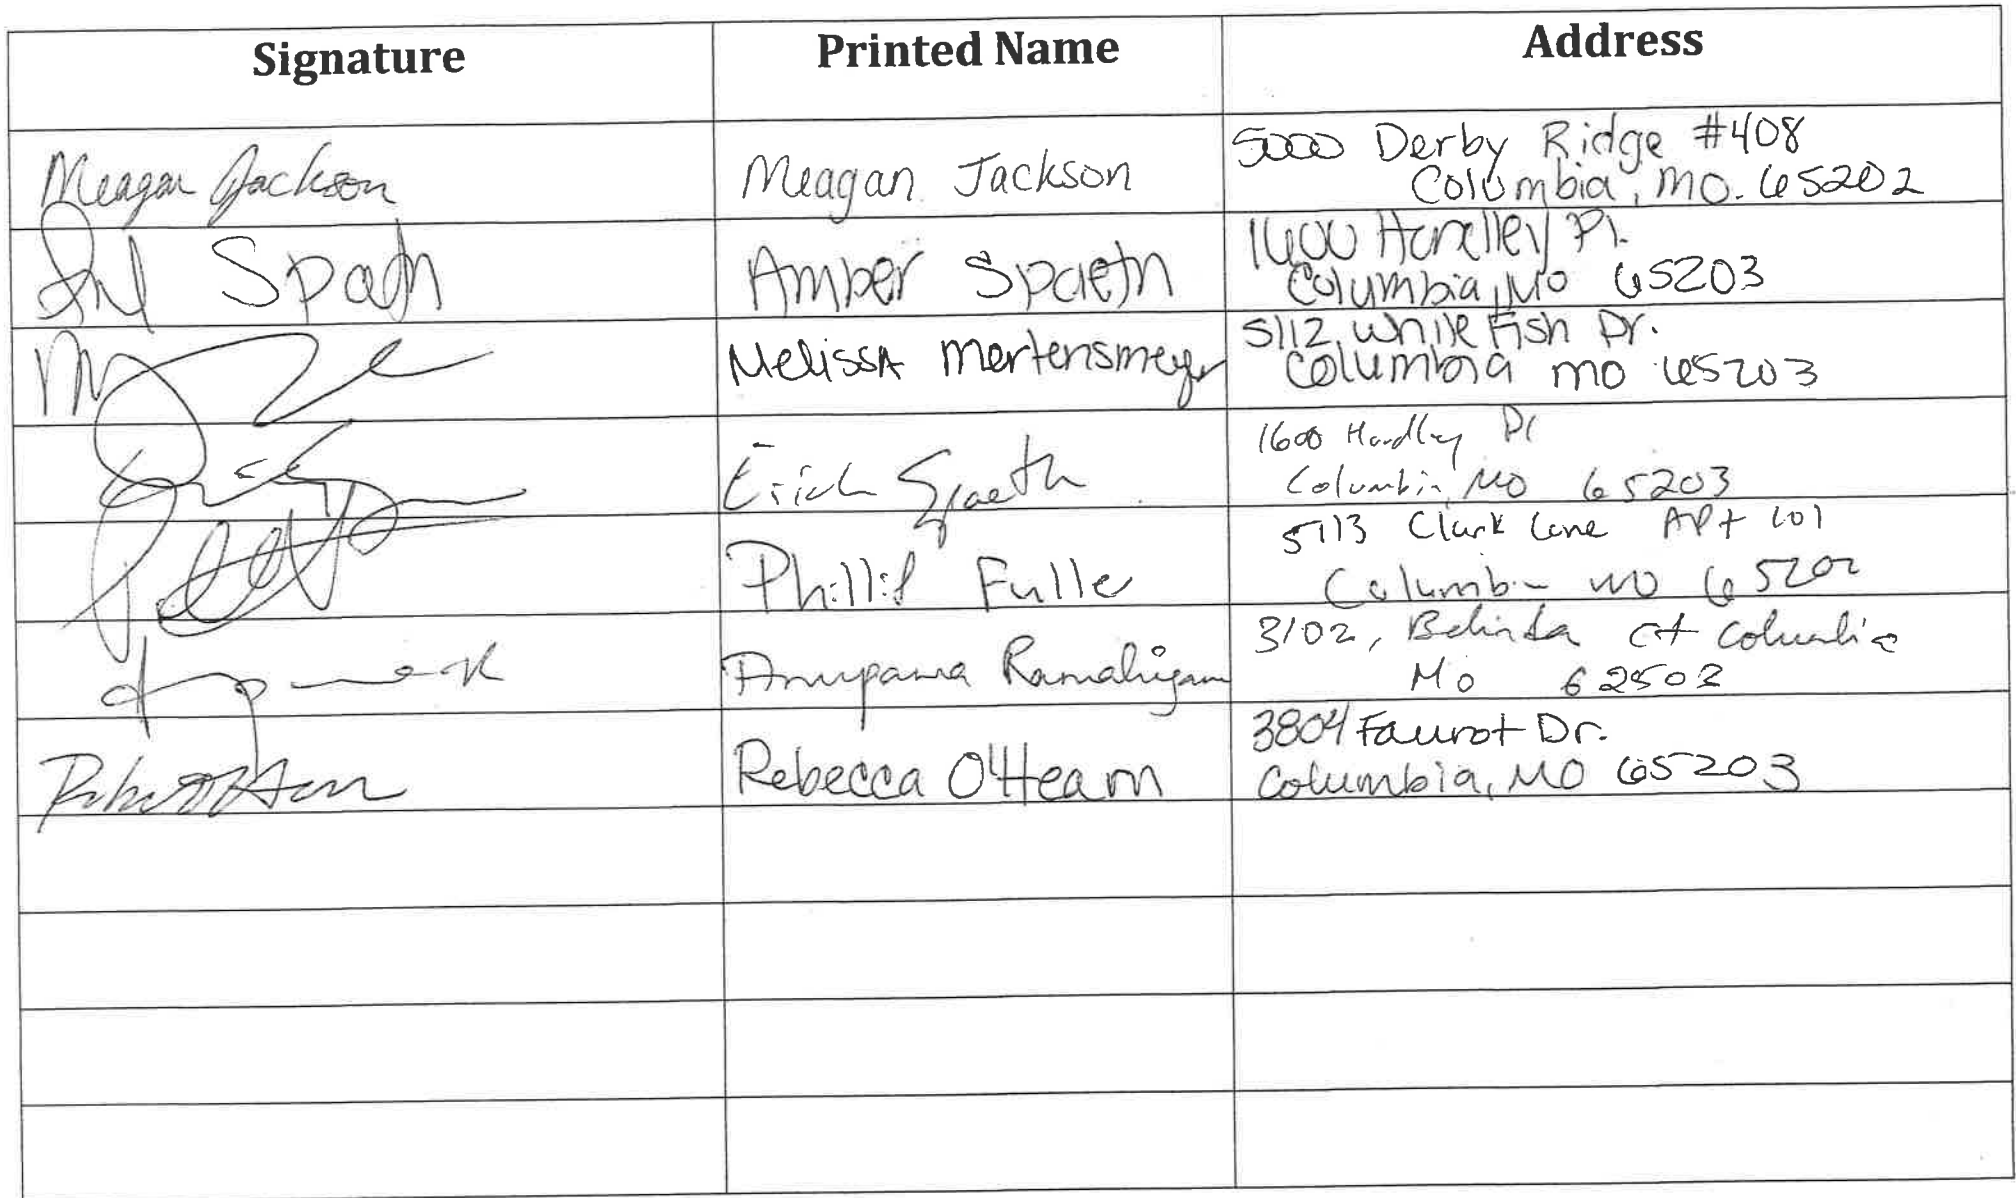 Signature Printed Name Address
Meagan Jackson Meagan Jackson 5000 Derby Ridge #408
Columbia, MO. 65202
Spaeth Amber Spaeth 1600 Handley Pl.
Columbia, MO 65203
Melissa Mertensmeyer 5112 White Fish Dr.
Columbia MO 65203
Erich Spaeth 1600 Handley Pl
Columbia, MO 65203
Phillip Fuller 5113 Clark Lane APt 101
Columbia MO 65202
Anupama Ramalingam 3102, Belinda ct Columbia
Mo 62503
Rebecca O'Hearn 3804 Faurot Dr.
Columbia, MO 65203